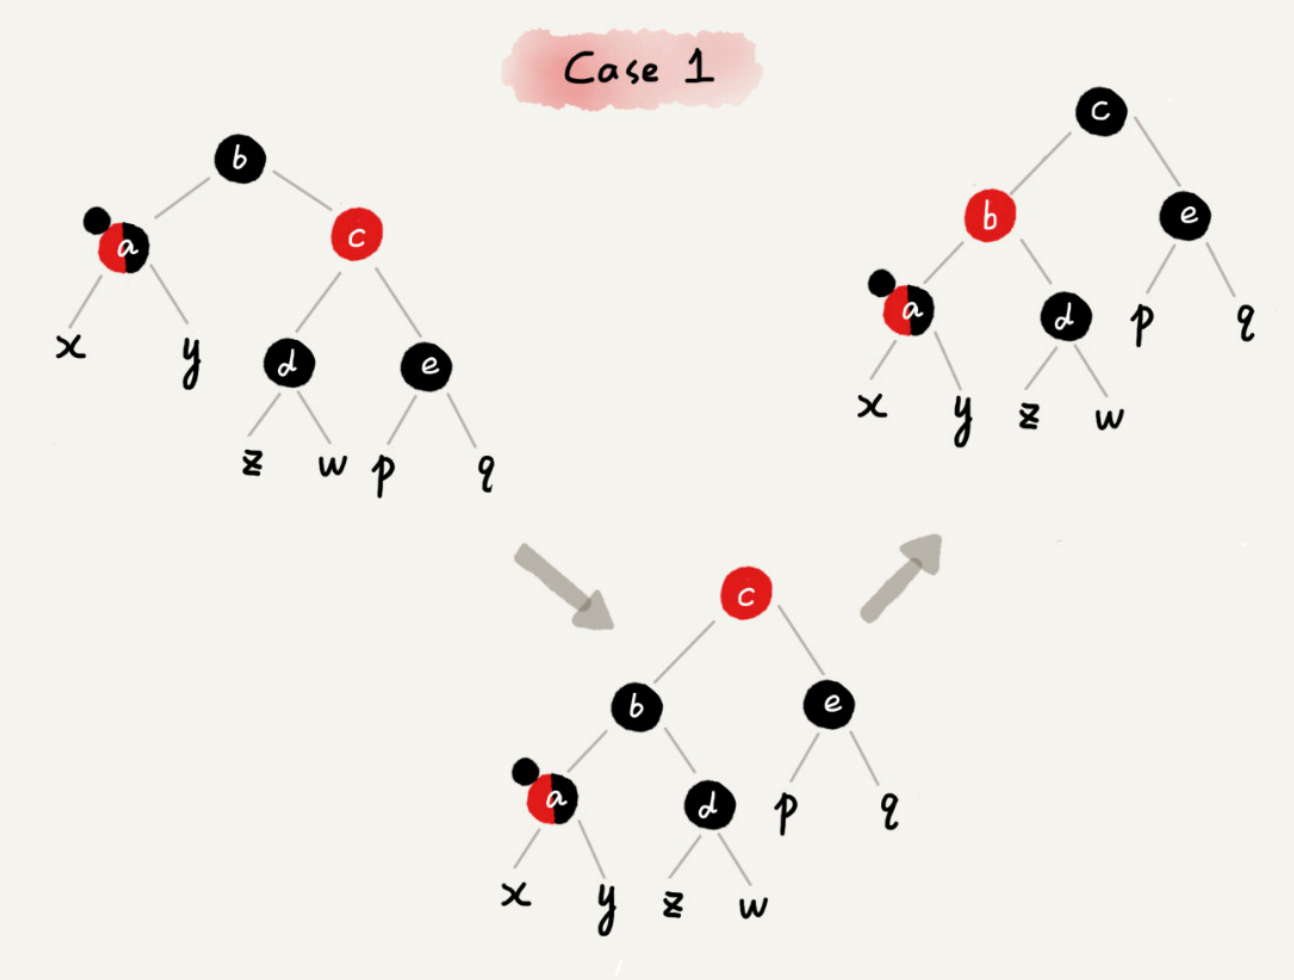 Case 1
b
a c
x y d e
z w p q
c
b e
a d p q
x y z w
c
b e
a d p q
x y z w